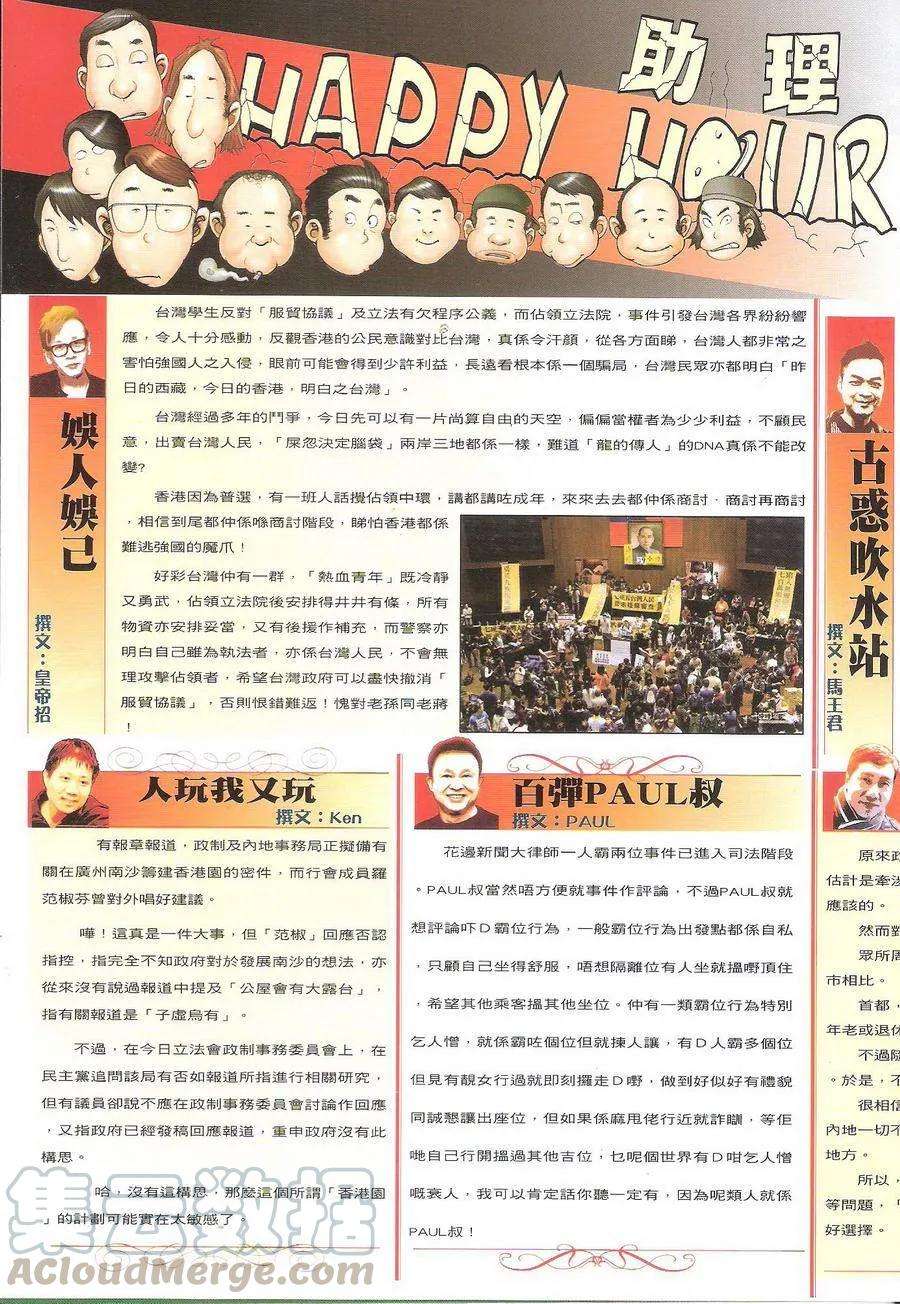 助理
HAPPY HOUR
娛人娛己
撰文：皇帝招
台灣學生反對「服貿協議」及立法有欠程序公義，而佔領立法院，事件引發台灣各界紛紛響
應，令人十分感動，反觀香港的公民意識對比台灣，真係令汗顏，從各方面睇，台灣人都非常之
害怕強國人之入侵，眼前可能會得到少許利益，長遠看根本係一個騙局，台灣民眾亦都明白「昨
日的西藏，今日的香港，明白之台灣」。
台灣經過多年的鬥爭，今日先可以有一片尚算自由的天空，偏偏當權者為少少利益，不顧民
意，出賣台灣人民，「屎忽決定腦袋」兩岸三地都係一樣，難道「龍的傳人」的DNA真係不能改
變?
香港因為普選，有一班人話攪佔領中環，講都講咗成年，來來去去都仲係商討．商討再商討
，相信到尾都仲係喺商討階段，睇怕香港都係
難逃強國的魔爪！
好彩台灣仲有一群，「熱血青年」既冷靜
又勇武，佔領立法院後安排得井井有條，所有
物資亦安排妥當，又有後援作補充，而警察亦
明白自己雖為執法者，亦係台灣人民，不會無
理攻擊佔領者，希望台灣政府可以盡快撤消「
服貿協議」，否則恨錯難返！愧對老孫同老蔣
！
古惑吹水站
撰文：馬王君
人玩我又玩
撰文：Ken
有報章報道，政制及內地事務局正擬備有
關在廣州南沙籌建香港園的密件，而行會成員羅
范椒芬曾對外唱好建議。
嘩！這真是一件大事，但「范椒」回應否認
指控，指完全不知政府對於發展南沙的想法，亦
從來沒有說過報道中提及「公屋會有大露台」，
指有關報道是「子虛烏有」。
不過，在今日立法會政制事務委員會上，在
民主黨追問該局有否如報道所指進行相關研究，
但有議員卻說不應在政制事務委員會討論作回應
，又指政府已經發稿回應報道，重申政府沒有此
構思。
哈，沒有這構思，那麼這個所謂「香港園
」的計劃可能實在太敏感了。
百彈PAUL叔
撰文：PAUL
花邊新聞大律師一人霸兩位事件已進入司法階段
。PAUL叔當然唔方便就事件作評論，不過PAUL叔就
想評論吓D霸位行為，一般霸位行為出發點都係自私
，只顧自己坐得舒服，唔想隔離位有人坐就搵嘢頂住
，希望其他乘客搵其他坐位。仲有一類霸位行為特別
乞人憎，就係霸咗個位但就揀人讓，有D人霸多個位
但見有靚女行過就即刻攞走D嘢，做到好似好有禮貌
同誠懇讓出座位，但如果係麻甩佬行近就詐瞓，等佢
哋自己行開搵過其他吉位，乜呢個世界有D咁乞人憎
嘅衰人，我可以肯定話你聽一定有，因為呢類人就係
PAUL叔！
原來政
估計是牽涉
應該的。
然而對
眾所周
市相比。
首都，
年老或退休
不過隨
。於是，不
很相信
內地一切不
地方。
所以，
等問題，「
好選擇。
集云数据
AcloudMerge.com